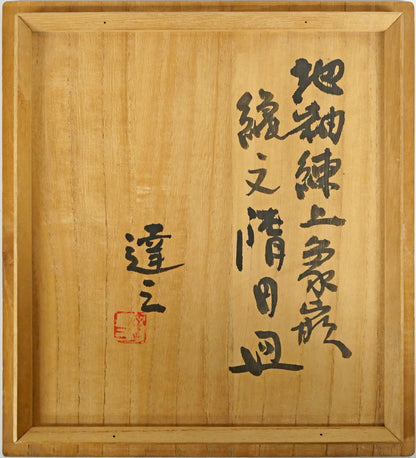 地釉練上象嵌
縄文隋円皿
達三